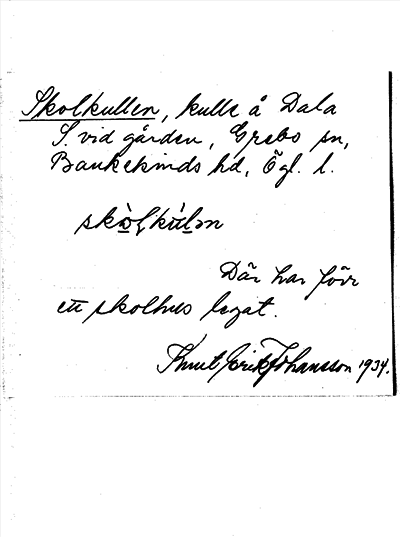 Skolkullen, kulle å Dala
S. vid gården, Grebo sn,
Bankekinds hd, Ögl. l.
skò̤ɭkùlən
Där har förr
ett skolhus legat.
Knut Erik Johansson 1934.